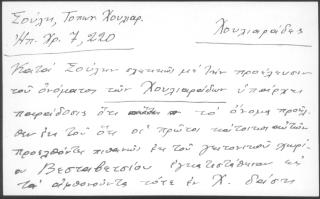 Σούλη, Τοπων. Χουλιαρ.
Ἠπ. Χρ. 7, 220
Χουλιαράδες
Κατά Σούλην σχετικῶς με την προέλευσιν
του ὀνόματος τῶν Χουλιαράδων ὑπάρχει
παράδοσις ὅτι το ὄνομα προῆλ-
θεν ἐκ του ὅτι οἱ πρῶτοι κάτοικοι αὐτῶν
προελθόντες πιθανῶς ἐκ του γειτονικού χωρί-
ου Βεσταβετσίου ἐγκατεστάθησαν εἰς
τά τότε ἐν Χ. δάση